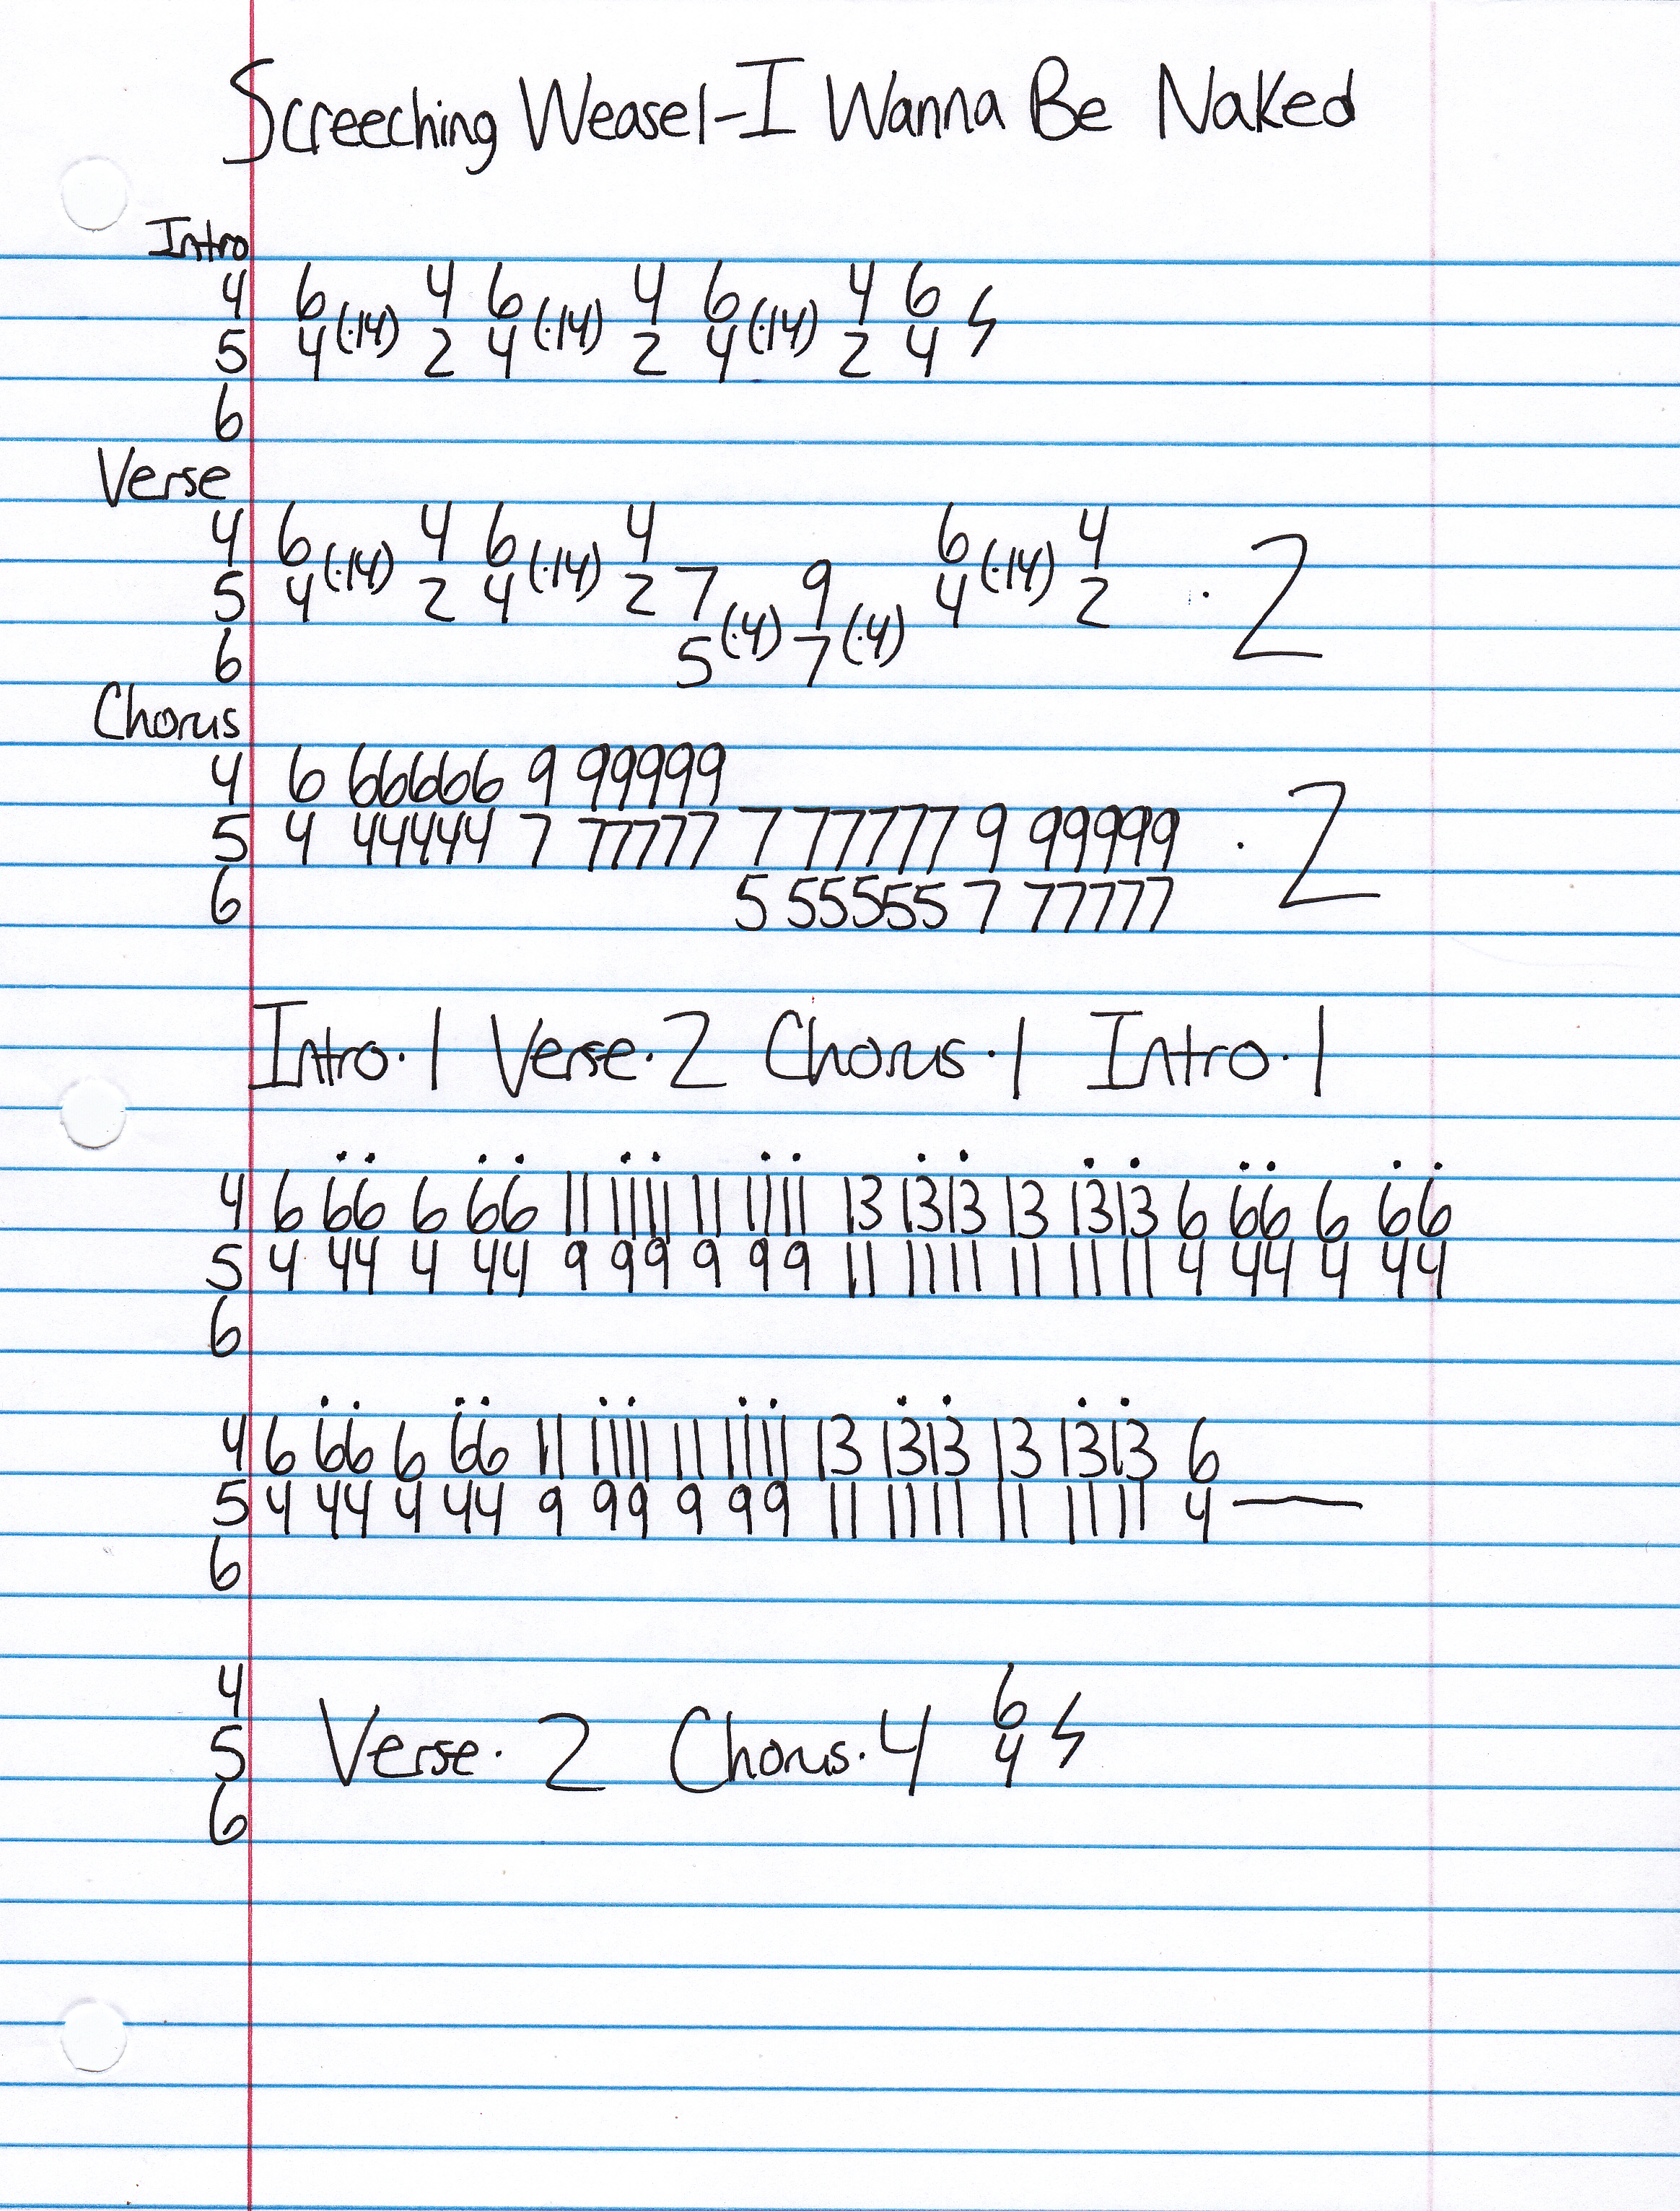 Screeching Weasel-I Wanna Be Naked
Intro
4 6 4 6 4 6 4 6
5 4(·14) 2 4(·14) 2 4(·14) 2 4
6
Verse
4 6 4 6 4 6 4
5 4(·14) 2 4(·14) 2 7 9 4(·14) 2 · 2
6 5(·4) 7(·4)
Chorus
4 6 66666 9 99999
5 4 44444 7 77777 7 77777 9 99999 · 2
6 5 55555 7 77777
Intro·1 Verse·2 Chorus·1 Intro·1
4 6 66 6 66 11 1111 11 1111 13 1313 13 1313 6 66 6 66
5 4 44 4 44 9 99 9 99 11 1111 11 1111 4 44 4 44
6
4 6 66 6 66 11 1111 11 1111 13 1313 13 1313 6
5 4 44 4 44 9 99 9 99 11 1111 11 1111 4 —
6
4 6
5 Verse·2 Chorus·4 4
6